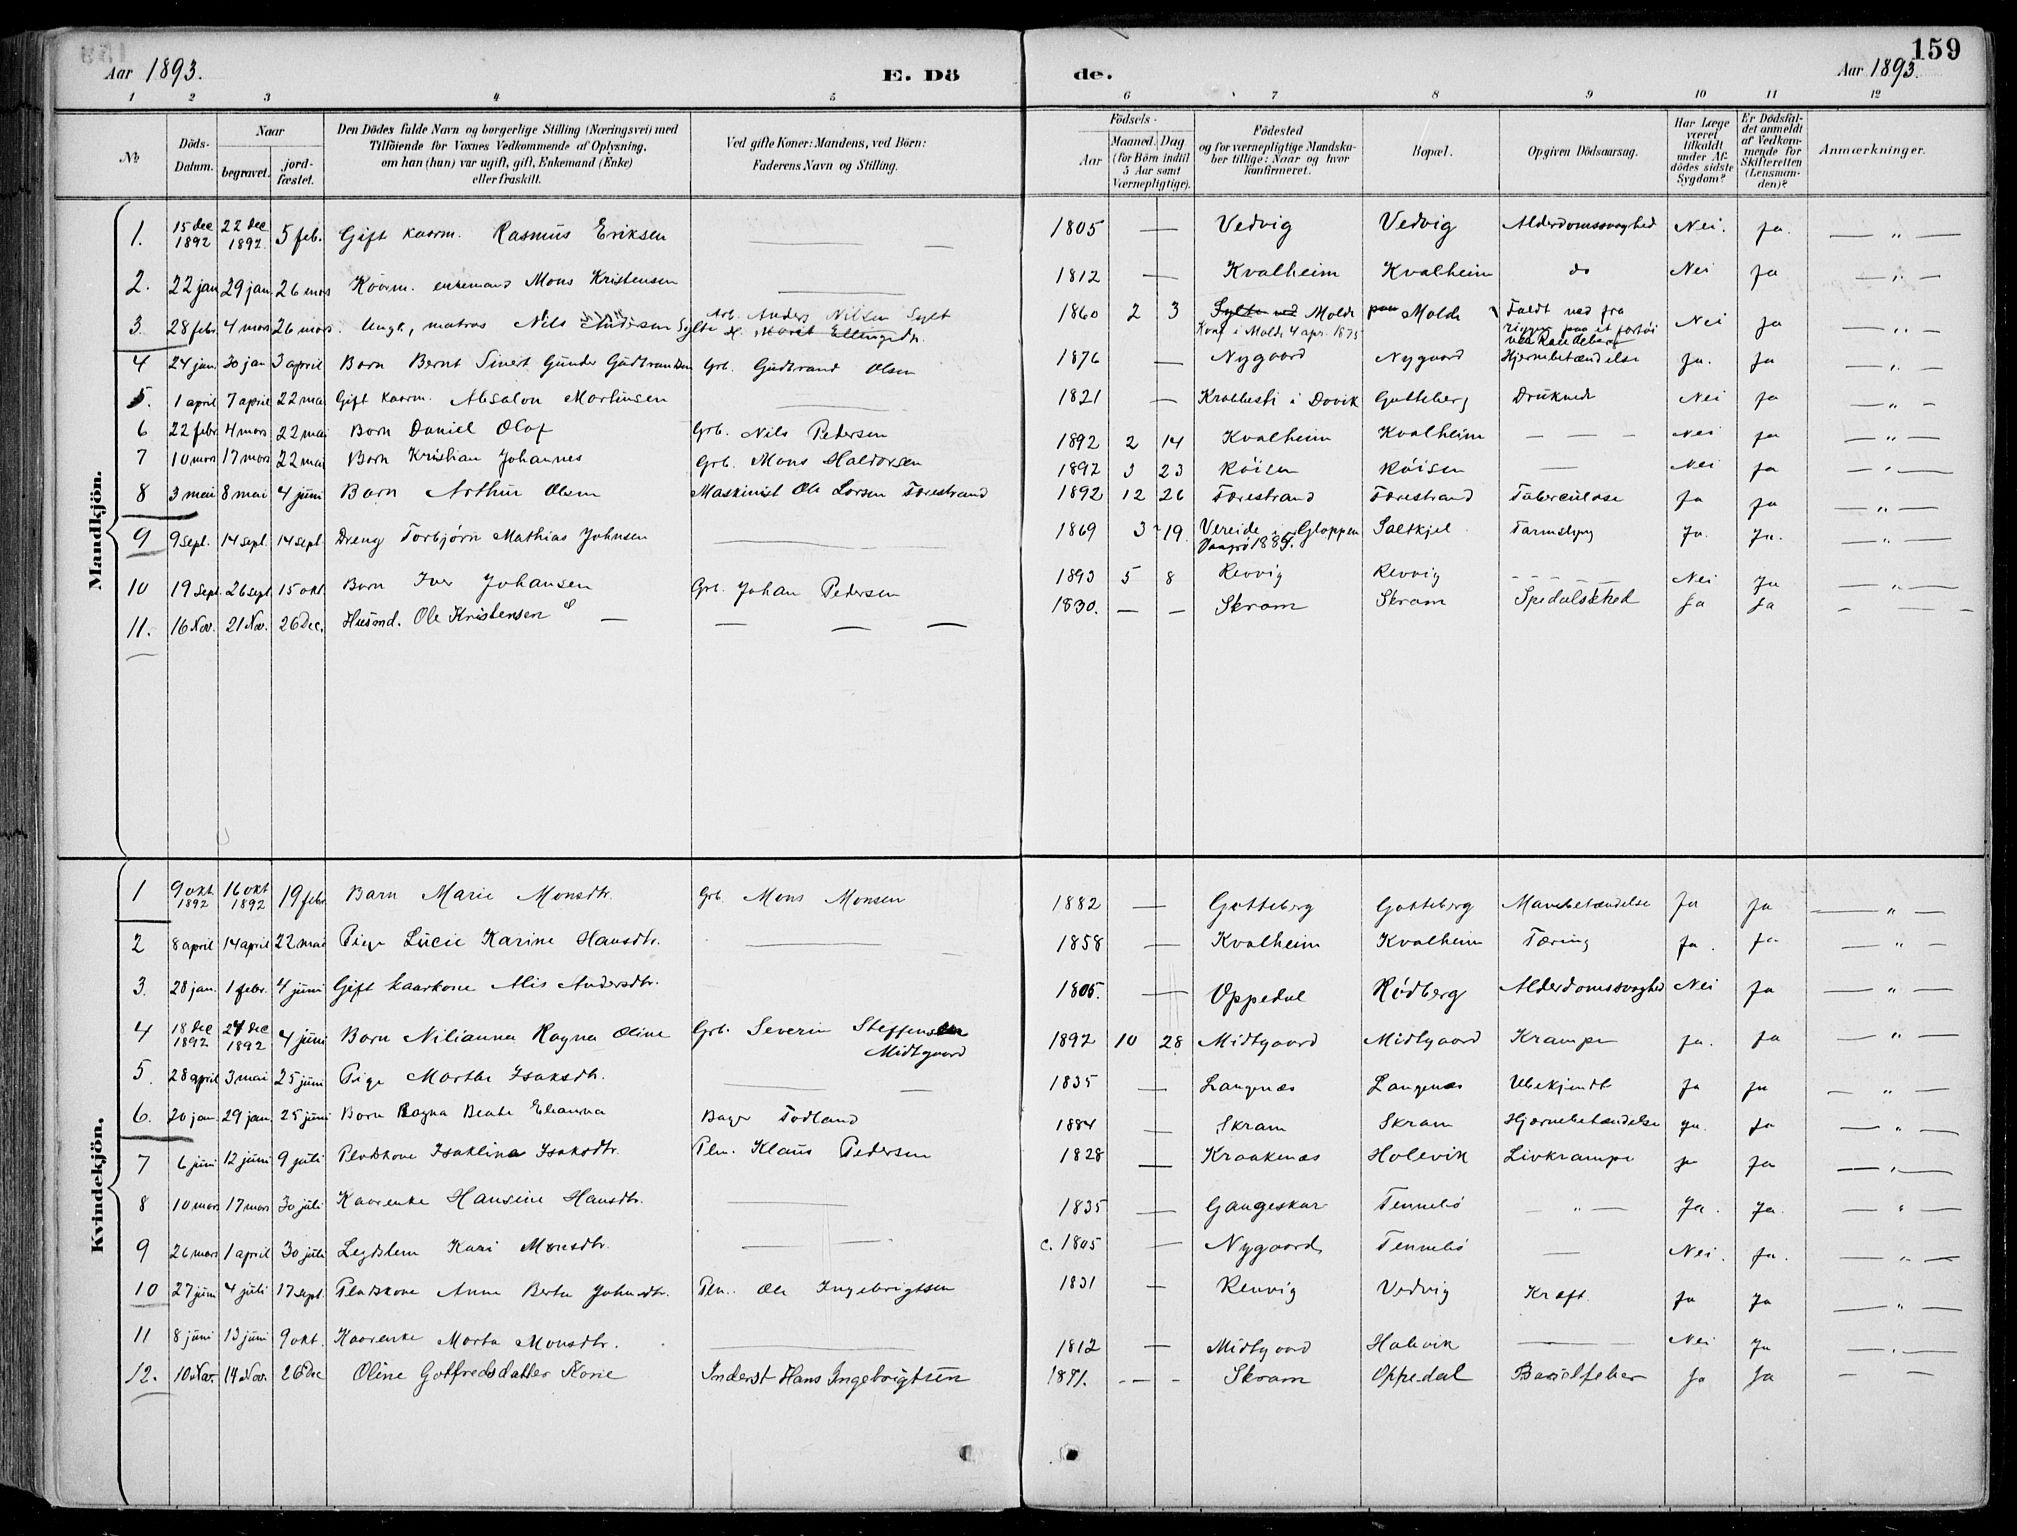 159
Aar 1893. E. Dö de. Aar 1893.
1 2 3 4 5 6 7 8 9 10 11 12
No
Döds-Datum.
Naar
begravet.
jord-fæstet.
Den Dödes fulde Navn og borgerlige Stilling (Næringsvei) med
Tilföiende for Voxnes Vedkommende af Oplysning,
om han (hun) var ugift, gift, Enkemand (Enke)
eller fraskilt.
Ved gifte Koner: Mandens, ved Börn:
Faderens Navn og Stilling.
Födsels-
Aar
Maaned. Dag
(for Börn indtil
5 Aar samt
Værnepligtige).
Födested
og for værnepligtige Mandska-
ber tillige: Naar og hvor
konfirmeret.
Bopæl.
Opgiven Dödsaarsag.
Har Læge
været
tilkaldt
under Af-
dödes sidste
Sygdom?
Er Dödsfal-
det anmeldt
af Vedkom-
mende for
Skifteretten
(Lensman-
den)?
Anmærkninger.
Mandkjön.
1. 15 dec 1892 22 dec 1892 5 feb. Gift kaarm. Rasmus Eriksen — — 1805 — Vedvig Vedvig Alderdomssvaghed Nei. ja. — „ —
2. 22 jan 29 jan. 26 mars Kaarm. enkemand Mons Kristensen — 1812 — Kvalheim Kvalheim do Nei ja — „ —
3. 28 febr. 4 mars 26 mars. Ungk., matros Nils Andersen Sylte Arb. Anders Nilsen Sylt 1860 2 3 Sylte ved Molde Molde Faldt ned fra
Konf i Molde 4 apr. 1875 Nei ja
4 24 jan. 30 jan 3 april Barn Bernt Sivert Gunder Gudbrandsen Grb. Gudbrand Olsen 1876 — Nygaard Nygaard Hjernebetændelse ja. ja — „ —
5. 1 april 7 april 22 mai Gift kaarm. Absalon Martinsen — 1821 — Krabbesti i Davik Gotteberg Druknede Nei ja — „ —
6 22 febr. 4 mars 22 mai Barn Daniel Olaf Grb. Nils Petersen 1892 2 14 Kvalheim Kvalheim — — — Nei ja — „ —
7 10 mars 17 mars 22 mai Barn Kristian Johannes Grb. Mons Haldorsen 1892 3 23 Røisen Røisen — Nei ja — „ —
8 3 mai 8 mai 4 juni Barn Arthur Olsen Maskinist Ole Larsen Færestrand 1892 12 26 Færestrand Færestrand Tuberculose ja ja — „ —
9 9 sept. 14 sept. 14 sept Dreng Torbjørn Mathias Johnsen — 1869 3 19 Vereide i Gloppen Saltkjel Ja. Ja. — „ —
Vaagsø 1885.
10 19 sept. 26 sept 15 okt. Barn Iver Johansen Grb. Johan Petersen 1893 5 8 Revvig Revvig - - - - Nei Ja — „ —
11. 16 Nov. 21 Nov. 26 Dec. Husmd. Ole Kristensen — — — — 1830. — — Skram Skram Spedalskhed Ja Ja — — —
Kvindekjön.
1 9 okt. 1892 16 okt 1892 19 febr. Barn Marie Monsdtr. Grb. Mons Monsen 1882 — Gotteberg Gotteberg Mavebetændelse Ja Ja — „ —
2 8 april 14 april 22 mai Pige Lucie Karine Hansdtr. — 1858 — Kvalheim Kvalheim Tæring ja. ja — „ —
3. 28 jan. 1 febr. 4 juni Gift kaarkone Alis Andersdtr. 1805. — Oppedal Rødberg Alderdomssvaghed Nei ja — „ —
4 18 dec 1892 27 dec 1892 4 juni Barn Nilianna Ragna Oline Grb. Severin Steffensen
Midtgaard 1892 10 28 Midtgaard Midtgaard Krampe ja. ja — „ —
5. 28 april 3 mai 25 juni Pige Marthe Isaksdtr. — — 1835 — Langenæs Langenæs Ubekjendt ja ja — „ —
6. 20 jan. 29 jan. 25 juni Barn Ragna Beate Elianna Bager Todland 1884 — Skram Skram Hjernebetændelse ja. ja — „ —
7 6 juni 12 juni 9 juli Pladskone Isaklina Isaksdtr. Plm. Klaus Pedersen 1828 — Kraakenæs Holevik Livkrampe ja ja — „ —
8 10 mars 17 mars 30 juli Kaarenke Hansine Hansdtr. — 1835 — Gangeskar Tennebø — „ — Ja. Ja. — „ —
9 26 mars 1 april 30 juli Legdslem Kari Monsdtr. — — c. 1805 — Nygaard Tennebø — Nei. ja. — „ —
10 27 juni 4 juli 17 sept. Pladskone Anne Berta Johnsdtr. Plm. Ole Ingebrigtsen 1831 — Revvig Vedvig Kræft. ja ja — „ —
11 8 juni 13 juni 9 okt. Kaarenke Marta Monsdtr. — 1812 — Midtgaard Holevik — Nei Ja — „ —
12. 10 Nov. 14 Nov. 26 Dec Oline Gotfredsdatter Inderst Hans Ingebrigtsen - - - Skram Oppedal Barselfeber Ja Ja — —